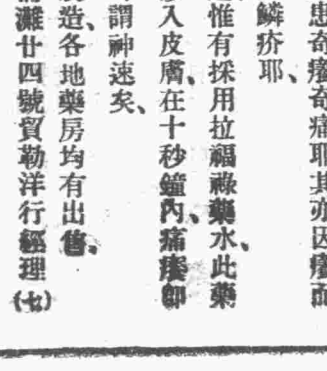 患奇癢奇痛耶其亦因癢而
鱗疥耶、
惟有採用拉福祿藥水、此藥
入皮膚、在十秒鐘內、痛癢卽
謂神速矣、
造、各地藥房均有出售、
灘廿四號貿勒洋行經理(七)